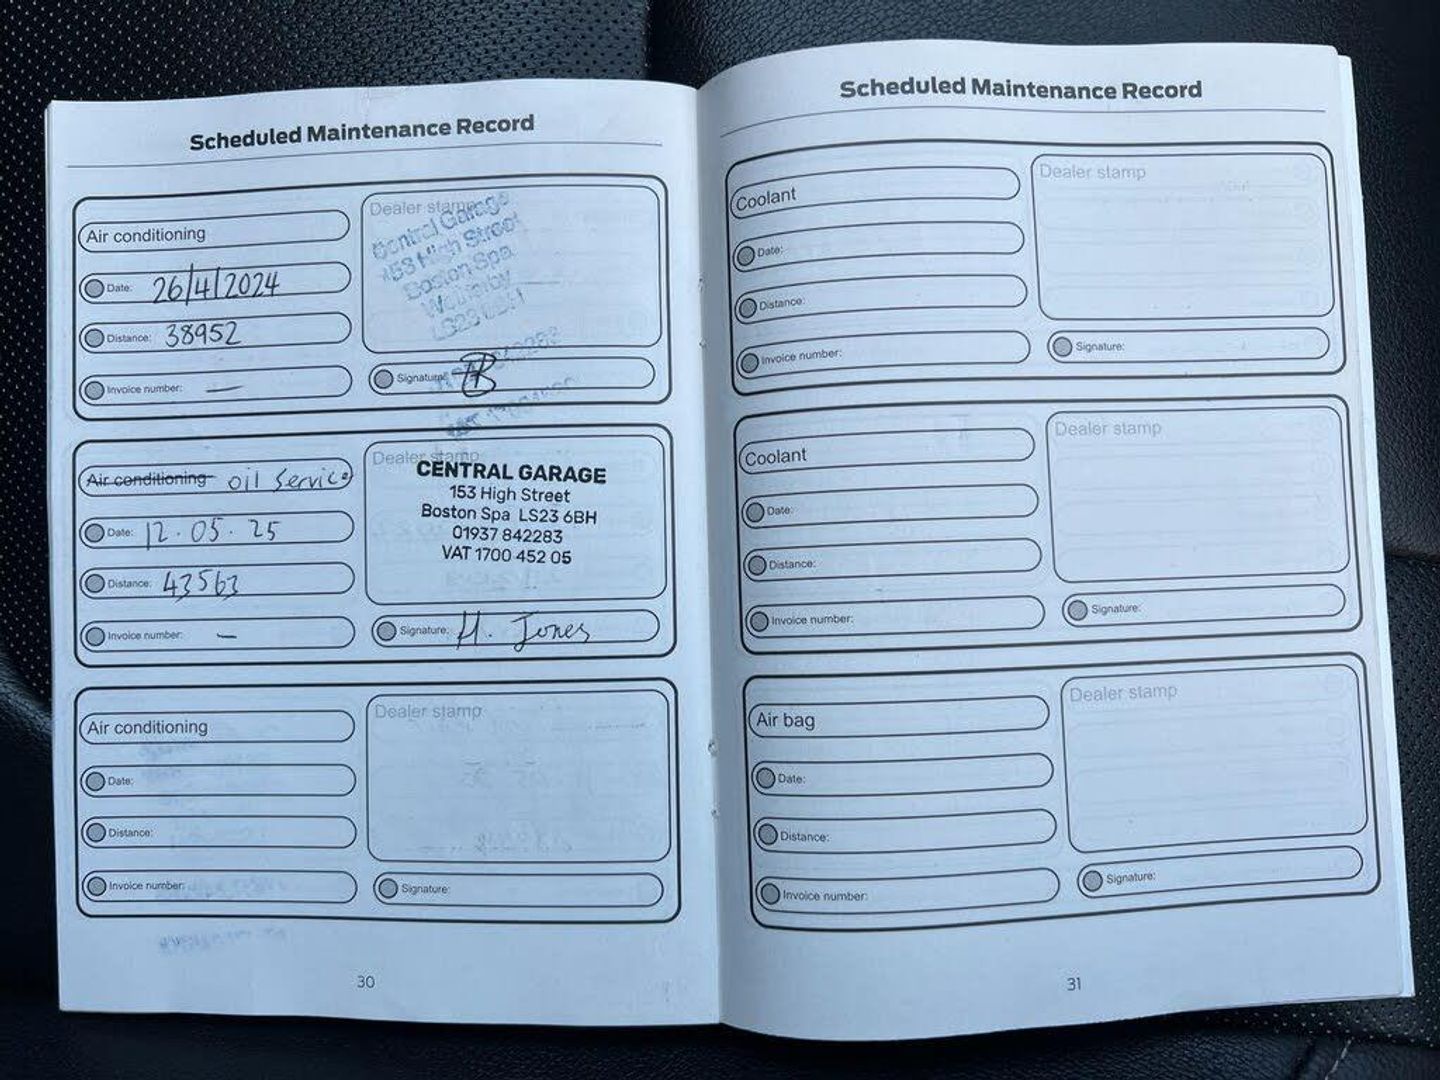 Scheduled Maintenance Record
Air conditioning
Date: 26/4/2024
Distance: 38952
Invoice number: —
Dealer stamp
Central Garage
153 High Street
Boston Spa
Wetherby
LS23 6BH
Signature:
Air conditioning oil service
Date: 12.05.25
Distance: 43563
Invoice number: –
Dealer stamp
CENTRAL GARAGE
153 High Street
Boston Spa LS23 6BH
01937 842283
VAT 1700 452 05
Signature: H. Jones
Air conditioning
Date:
Distance:
Invoice number:
Dealer stamp
Signature:
30
Scheduled Maintenance Record
Coolant
Date:
Distance:
Invoice number:
Dealer stamp
Signature:
Coolant
Date:
Distance:
Invoice number:
Dealer stamp
Signature:
Air bag
Date:
Distance:
Invoice number:
Dealer stamp
Signature:
31